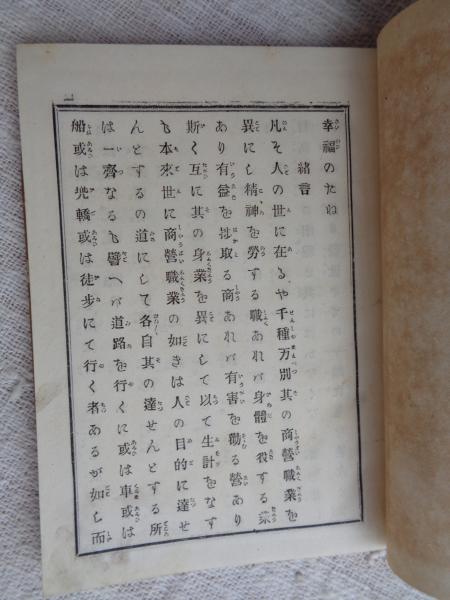 幸福のたね
緒言
凡そ人の世に在るや千種万別其の商營職業を
異にし精神を勞する職あれバ身體を役する業
あり有益を抄取る商あれバ有害を勸る營あり
斯く互に其の身業を異にして以て生計をなす
も本來世に商營職業の如きは人の目的に達せ
んとするの道にして各自其の達せんとする所
は一齊なるも譬へバ道路を行くに或は車或は
船或は轎或は徒歩にて行く者あるが如し而